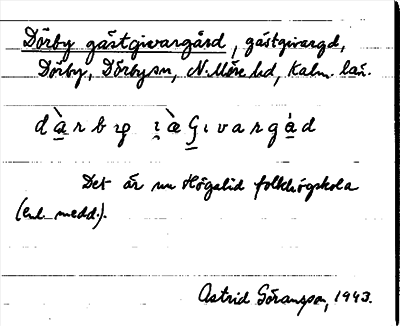 Dörby gästgivargård, gästgivargd,
Dörby, Dörby sn, N. Möre hd, Kalm. län.
Det är nu Högalid folkhögskola
(enl. medd.).
Astrid Göransson, 1943.